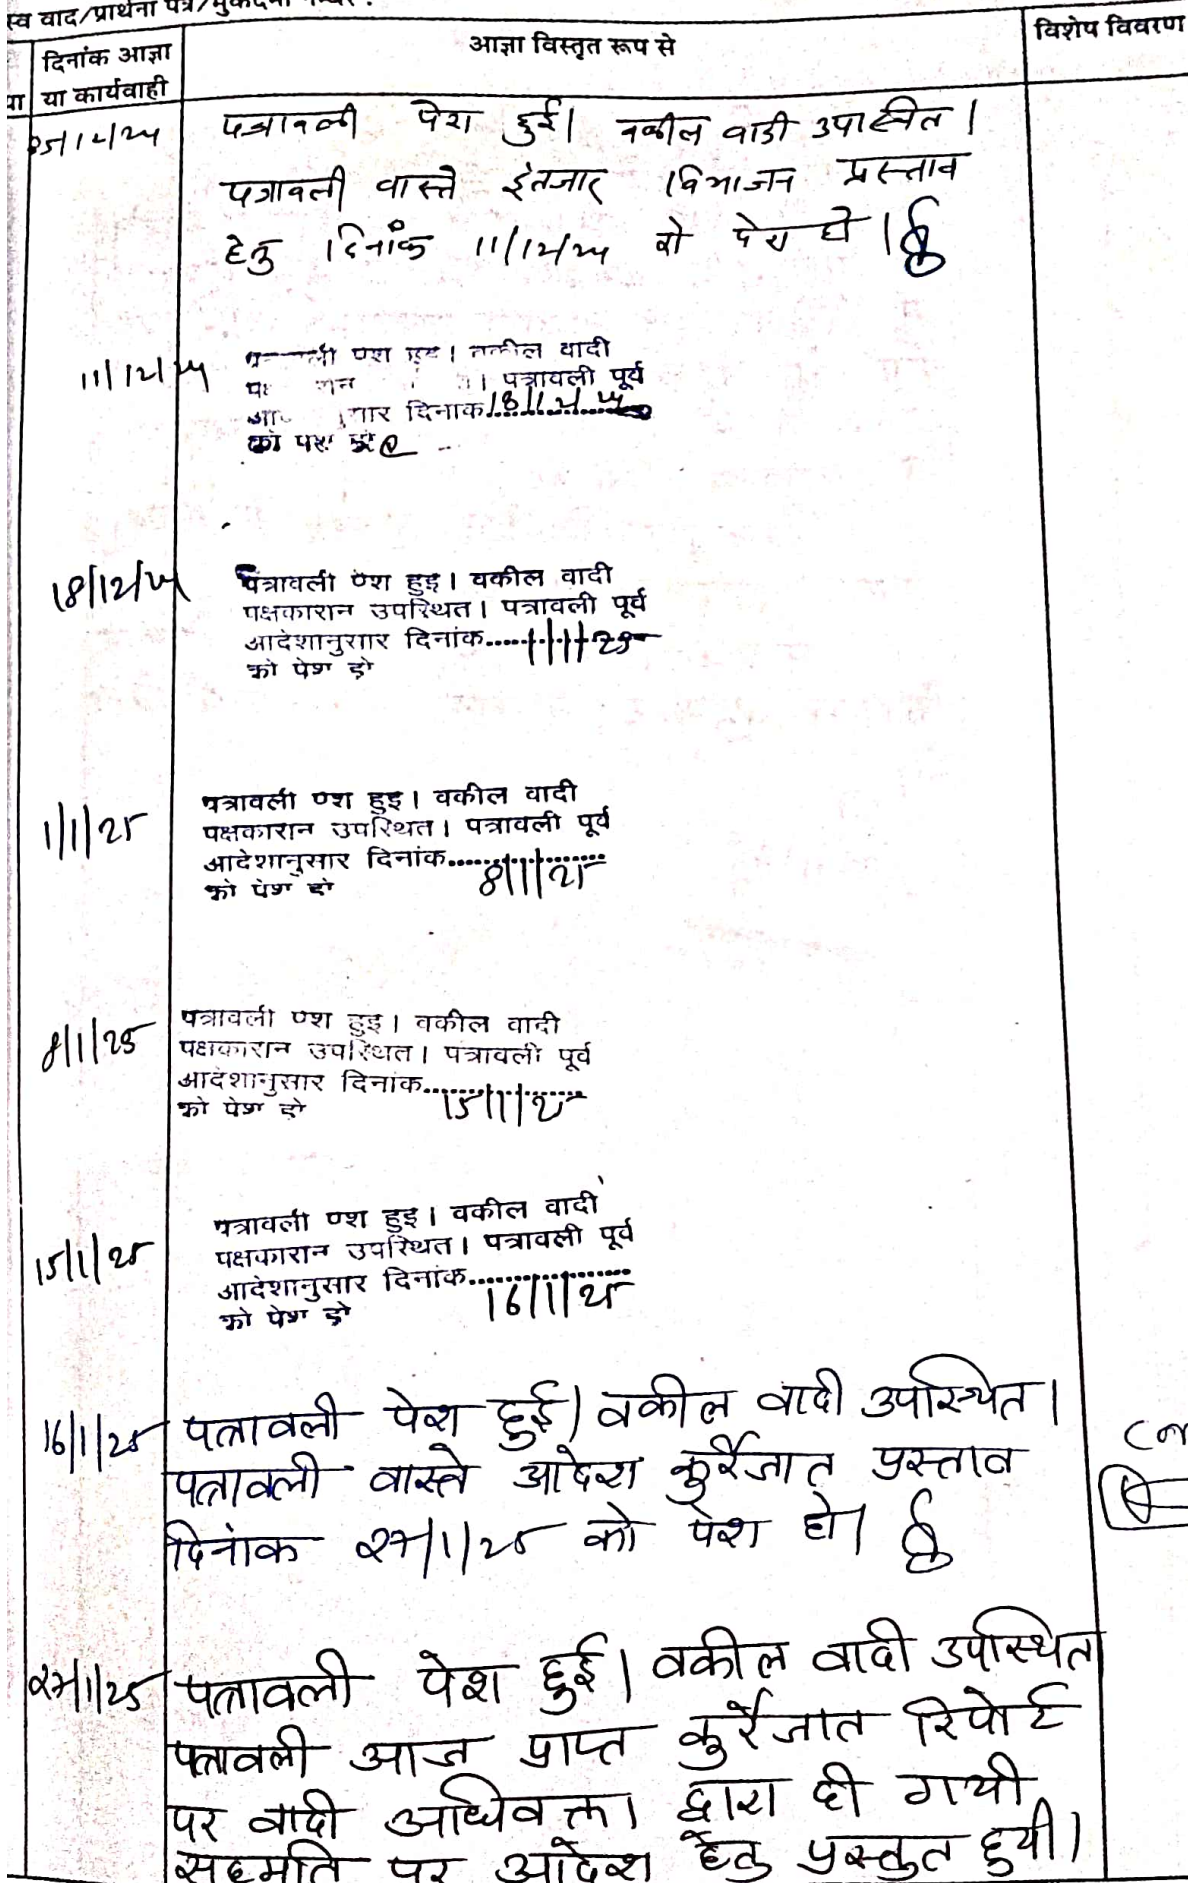 स्व वाद/प्रार्थना पत्र/मुकदमा नम्बर :
दिनांक आज्ञा
या कार्यवाही
आज्ञा विस्तृत रूप से
विशेष विवरण
पत्रावली पेश हुई। वकील वादी उपस्थित।
पत्रावली वास्ते इंतजार विभाजन प्रस्ताव
हेतु दिनांक 11/12/24 को पेश हो।
11/12/24
ली पेश हुई। वकील वादी
पत्रावली पूर्व
दिनांक 18/12/24
को पेश हो
18/12/24
पत्रावली पेश हुई। वकील वादी
पक्षकारान उपस्थित। पत्रावली पूर्व
आदेशानुसार दिनांक......1/1/25
को पेश हो
1/1/25
पत्रावली पेश हुई। वकील वादी
पक्षकारान उपस्थित। पत्रावली पूर्व
आदेशानुसार दिनांक......8/1/25
को पेश हो
8/1/25
पत्रावली पेश हुई। वकील वादी
पक्षकारान उपस्थित। पत्रावली पूर्व
आदेशानुसार दिनांक......15/1/25
को पेश हो
15/1/25
पत्रावली पेश हुई। वकील वादी
पक्षकारान उपस्थित। पत्रावली पूर्व
आदेशानुसार दिनांक......16/1/25
को पेश हो
16/1/25
पत्रावली पेश हुई। वकील वादी उपस्थित।
पत्रावली वास्ते आदेश कुर्रेजात प्रस्ताव
दिनांक २७/1/25 को पेश हो।
२७/1/25
पत्रावली पेश हुई। वकील वादी उपस्थित
पत्रावली आज प्राप्त कुर्रेजात रिपोर्ट
पर वादी अधिवक्ता द्वारा दी गयी
सहमति पर आदेश हेतु प्रस्तुत हुयी।